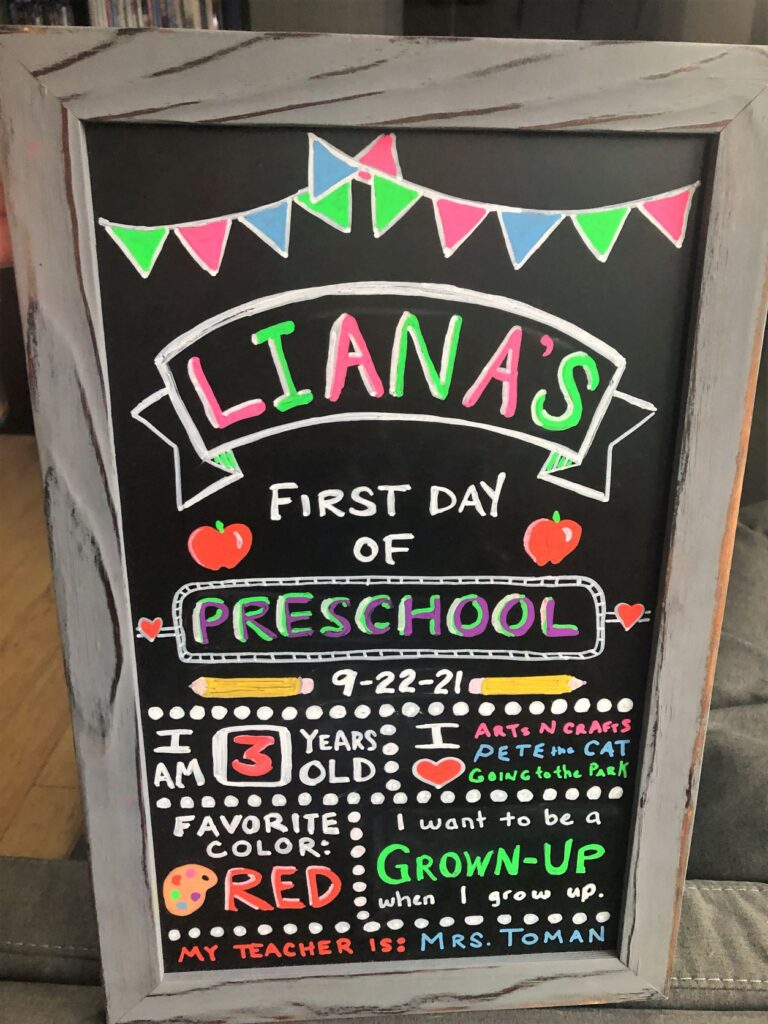 LIANA'S
FIRST DAY
OF
PRESCHOOL
9-22-21
I AM 3 YEARS OLD
I ARTS N CRAFTS
PETE the CAT
GOING to the PARK
FAVORITE
COLOR:
RED
I want to be a
GROWN-UP
when I grow up.
MY TEACHER IS: MRS. TOMAN